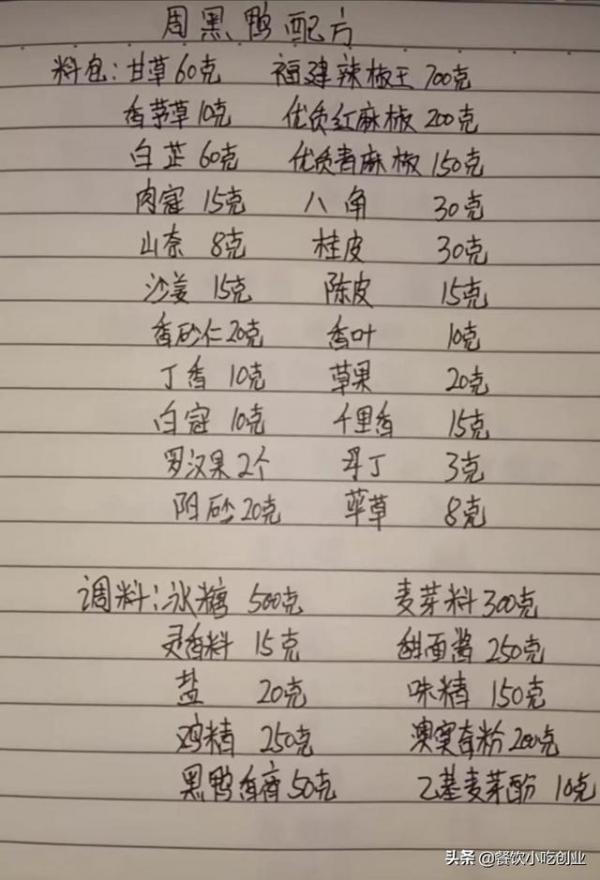 周黑鸭配方
料包:甘草60克 福建辣椒王700克
香茅草10克 优质红麻椒200克
白芷60克 优质青麻椒150克
肉寇 15克 八角 30克
山奈 8克 桂皮 30克
沙姜 15克 陈皮 15克
香砂仁20克 香叶 10克
丁香 10克 草果 20克
白寇 10克 千里香 15克
罗汉果2个 丁 3克
阳砂20克 荜草 8克
调料:冰糖 500克 麦芽料300克
灵香料 15克 甜面酱250克
盐 20克 味精 150克
鸡精 250克 澳宾奇粉200克
黑鸭香膏50克 乙基麦芽酚 10克
头条 @餐饮小吃创业